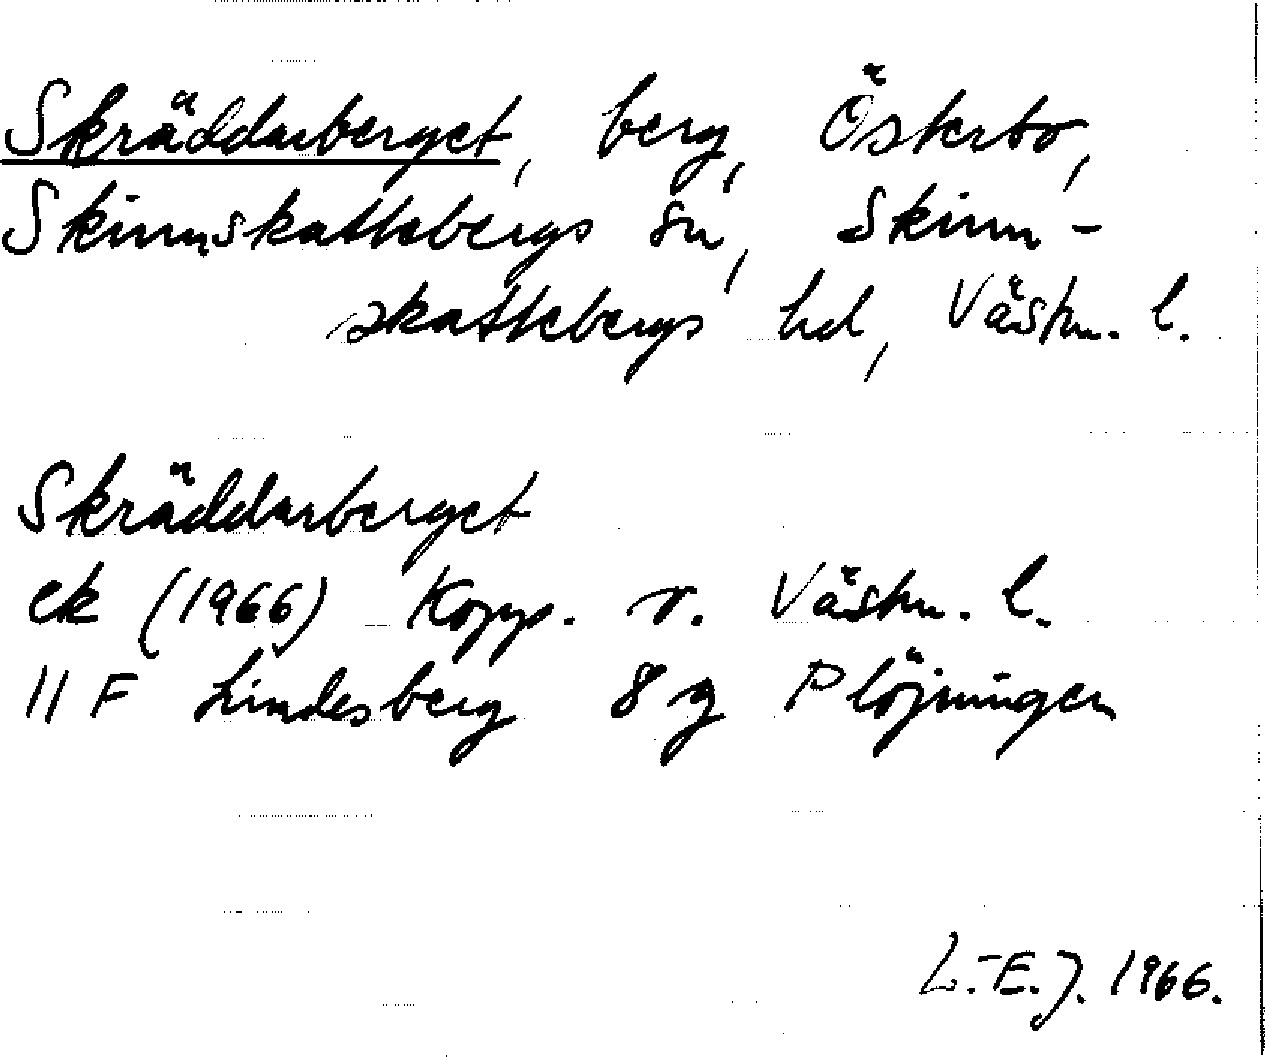 Skräddarberget, berg, Österbo,
Skinnskattebergs sn, Skinn-
skattebergs hd, Västm. l.
Skräddarberget
ek (1966) Kopp. o. Västm. l.
11 F Lindesberg 8 g Plöjningen
L.-E. J. 1966.